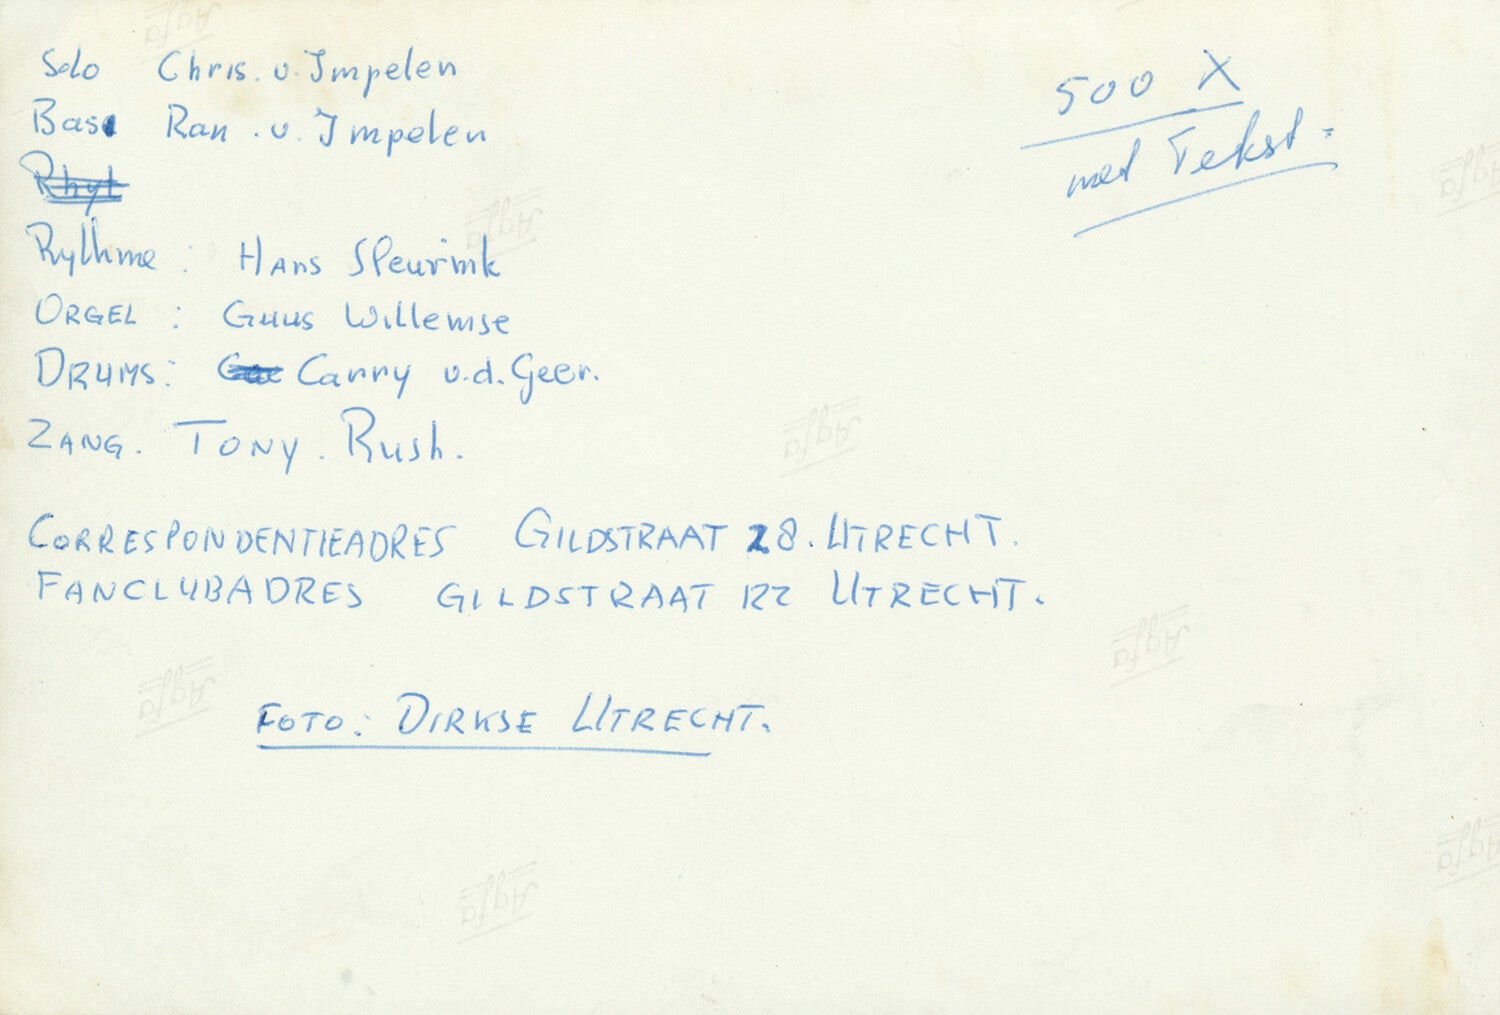 Solo Chris. v. Impelen
Bas Ran. v. Impelen
Rhyt
Rythme : Hans Sleurink
ORGEL : Guus Willemse
DRUMS: Carry v.d. Geer.
ZANG. TONY. Rush.
CORRESPONDENTIEADRES GILDSTRAAT 28. UTRECHT.
FANCLUBADRES GILDSTRAAT 122 UTRECHT.
FOTO: DIRKSE UTRECHT.
500 X
met Tekst.
Agfa
Agfa
Agfa
Agfa
Agfa
Agfa
Agfa
Agfa